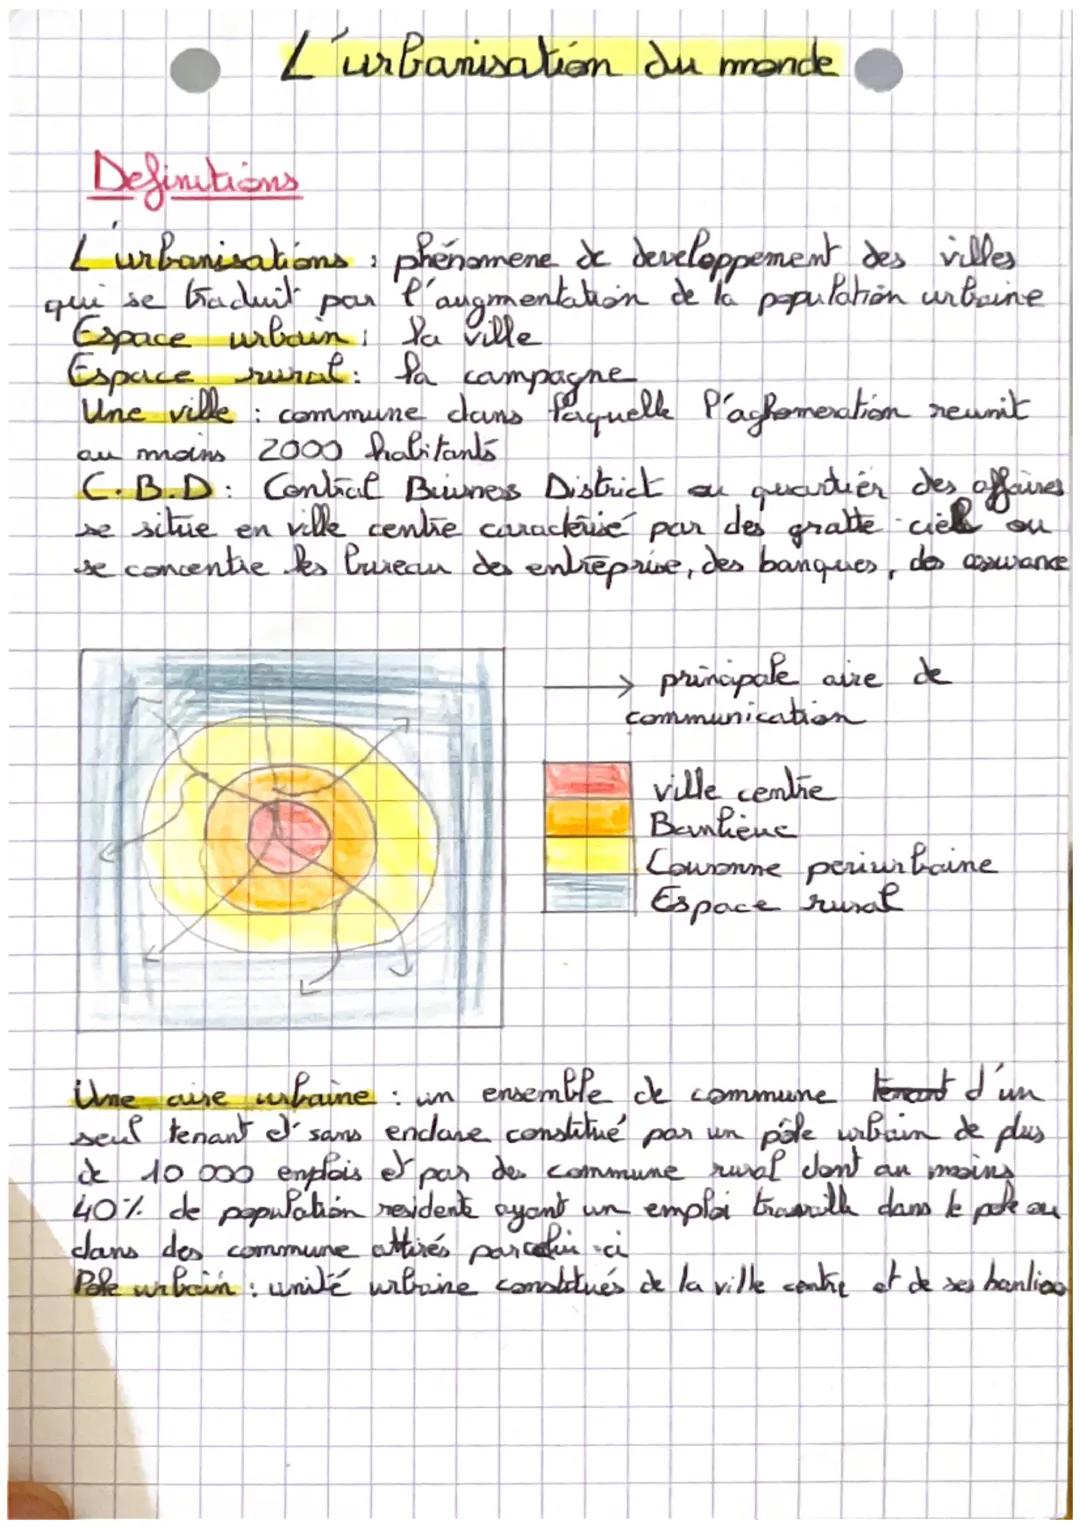 L'urbanisation du monde
Definitions
L'urbanisations : phénomene de developpement des villes
qui se traduit par l'augmentation de la population urbaine
Espace urbain : la ville
Espace rural : la campagne
Une ville : commune dans laquelle l'aglomeration reunit
au moins 2000 habitants
C.B.D : Central Buisness District ou quartier des affaires
se situe en ville centre caractérisé par des gratte-ciels ou
se concentre les bureau des entreprise, des banques, des assurance
→ principale aire de
communication
ville centre
Banlieue
Couronne periurbaine
Espace rural
Une aire urbaine : un ensemble de commune tenant d'un
seul tenant et sans enclave constitué par un pôle urbain de plus
de 10 000 emplois et par des commune rural dont au moins
40% de population residente ayant un emploi travaille dans le pole ou
dans des commune attirés par celui-ci
Pole urbain : unité urbaine constitués de la ville centre et de ses banlieu